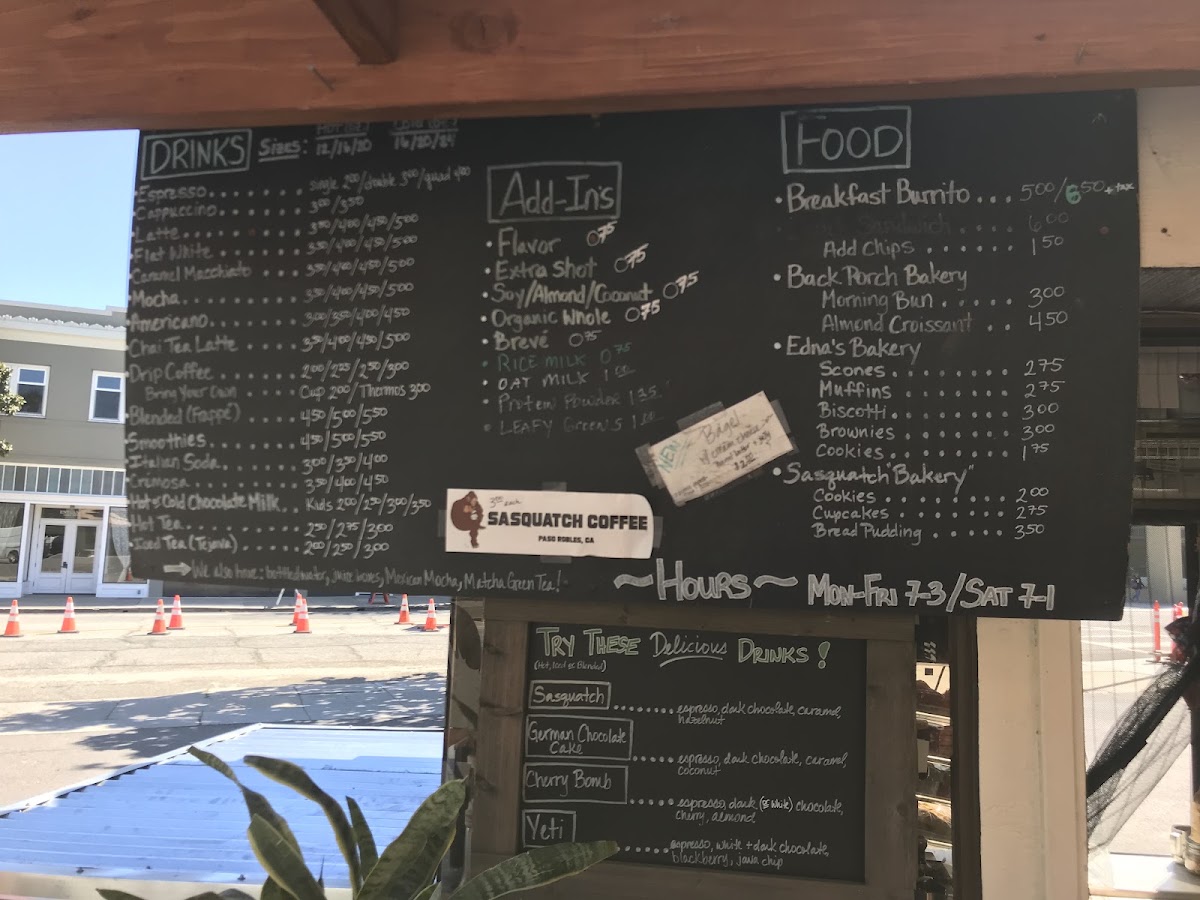 DRINKS
Sizes: 12/16/20 16/20/24
• Espresso....... single 2⁰⁰/double 3⁰⁰/quad 4⁰⁰
• Cappuccino....... 3⁰⁰/3⁵⁰
• Latte....... 3⁵⁰/4⁰⁰/4⁵⁰/5⁰⁰
• Flat White....... 3⁵⁰/4⁰⁰/4⁵⁰/5⁰⁰
• Caramel Macchiato.... 3⁵⁰/4⁰⁰/4⁵⁰/5⁰⁰
• Mocha....... 3⁵⁰/4⁰⁰/4⁵⁰/5⁰⁰
• Americano....... 3⁰⁰/3⁵⁰/4⁰⁰/4⁵⁰
• Chai Tea Latte..... 3⁵⁰/4⁰⁰/4⁵⁰/5⁰⁰
• Drip Coffee....... 2⁰⁰/2²⁵/2⁵⁰/3⁰⁰
Bring Your Own Cup 2⁰⁰/Thermos 3⁰⁰
• Blended (Frappé) 4⁵⁰/5⁰⁰/5⁵⁰
• Smoothies....... 4⁵⁰/5⁰⁰/5⁵⁰
• Italian Soda....... 3⁰⁰/3⁵⁰/4⁰⁰
• Cremosa....... 3⁵⁰/4⁰⁰/4⁵⁰
• Hot & Cold Chocolate Milk.. Kids 2⁰⁰/2⁵⁰/3⁰⁰/3⁵⁰
• Hot Tea....... 2⁵⁰/2⁷⁵/3⁰⁰
• Iced Tea (Tejava)..... 2⁰⁰/2⁵⁰/3⁰⁰
→ We also have: bottled water, juice boxes, Mexican Mocha, Matcha Green Tea!
Add-In's
• Flavor 0⁷⁵
• Extra Shot 0⁷⁵
• Soy/Almond/Coconut 0⁷⁵
• Organic Whole 0⁷⁵
• Brevé 0⁷⁵
• RICE MILK 0⁷⁵
• OAT MILK 1⁰⁰
• Protein Powder 1³⁵
• LEAFY Greens 1⁰⁰
NEW Bagel
w/ cream cheese
SASQUATCH COFFEE
PASO ROBLES, CA
FOOD
• Breakfast Burrito... 5⁰⁰/6⁵⁰ + tax
Sandwich.... 6⁰⁰
Add Chips...... 1⁵⁰
• Back Porch Bakery
Morning Bun.... 3⁰⁰
Almond Croissant.. 4⁵⁰
• Edna's Bakery
Scones....... 2⁷⁵
Muffins....... 2⁷⁵
Biscotti....... 3⁰⁰
Brownies....... 3⁰⁰
Cookies....... 1⁷⁵
• Sasquatch "Bakery"
Cookies....... 2⁰⁰
Cupcakes....... 2⁷⁵
Bread Pudding..... 3⁵⁰
~HOURS~ MON-FRI 7-3/SAT 7-1
TRY THESE Delicious DRINKS!
(Hot, Iced or Blended)
Sasquatch
....... espresso, dark chocolate, caramel,
hazelnut
German Chocolate
Cake
..... espresso, dark chocolate, caramel,
coconut
Cherry Bomb
..... espresso, dark (or white) chocolate,
cherry, almond
Yeti
....... espresso, white + dark chocolate,
blackberry, java chip